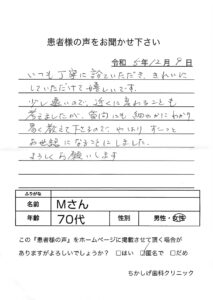 患者様の声をお聞かせ下さい
令和 6年12月9日
いつも丁寧に診ていただき、きれいに
していただけて嬉しいです。
少し遠いので、近くに変わることも
考えましたが、歯肉にも細やかにわかり
易く教えて下さるので、やっぱりずーっと
お世話になることにしました。
よろしくお願いします
ふりがな
名前 Mさん
年齢 70代 性別 男性・女性
この『患者様の声』をホームページに掲載させて頂く場合が
ありますがよろしいでしょうか？ □はい □匿名で □だめ
ちかしげ歯科クリニック